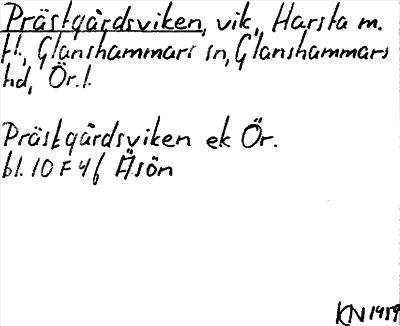 Prästgårdsviken, vik, Harsta m.
fl., Glanshammars sn, Glanshammars
hd, Ör.l.
Prästgårdsviken ek Ör.
bl. 10 F 4 f Äsön
KN 1959